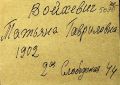 Войхевич
Татьяна Гавриловна
1902
2ая Слободская 44